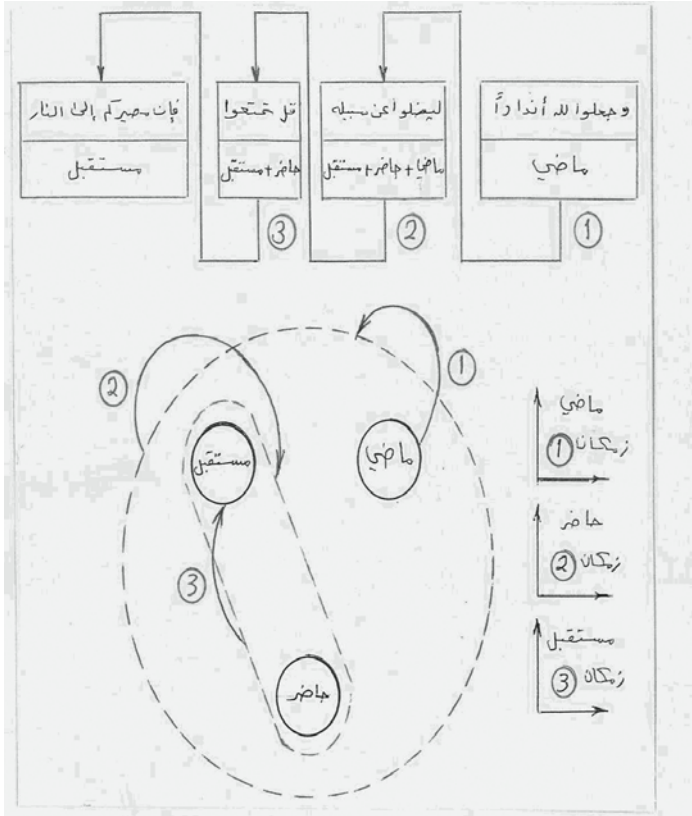 وجعلوا لله أنداداً
ماضي
ليضلوا عن سبيله
ماضي + حاضر + مستقبل
قل تمتعوا
حاضر + مستقبل
فإن مصيركم إلى النار
مستقبل
①
②
③
①
②
③
ماضي
مستقبل
حاضر
ماضي
زمكان ①
حاضر
زمكان ②
مستقبل
زمكان ③